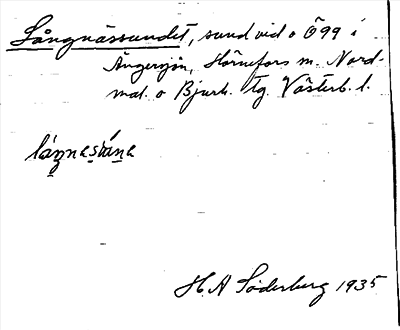 Långnässundet, sund vid o Ö99 i
Ängersjön, Hörnefors m. Nord-
mal. o Bjurh. tg. Västerb. l.
H. A Söderberg 1935